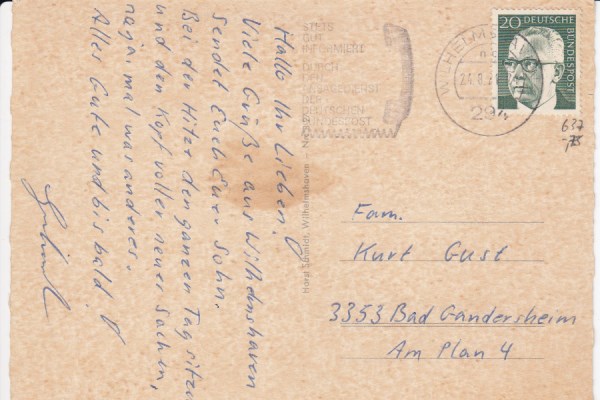 Hallo Ihr Lieben!
Viele Grüße aus Wilhelmshaven
Sendet Euch Euer Sohn.
Bei der Hitze den ganzen Tag sitzen
und den Kopf voller neuer Sachen,
naja, mal was anderes.
Alles Gute und bis bald!
STETS
GUT
INFORMIERT
DURCH
DEN
DER
DEUTSCHEN
BUNDESPOST
Horst Schmidt, Wilhelmshaven
WILHELMS
24.8.
294
20 DEUTSCHE
BUNDESPOST
637
Fam.
Kurt Gust
3353 Bad Gandersheim
Am Plan 4